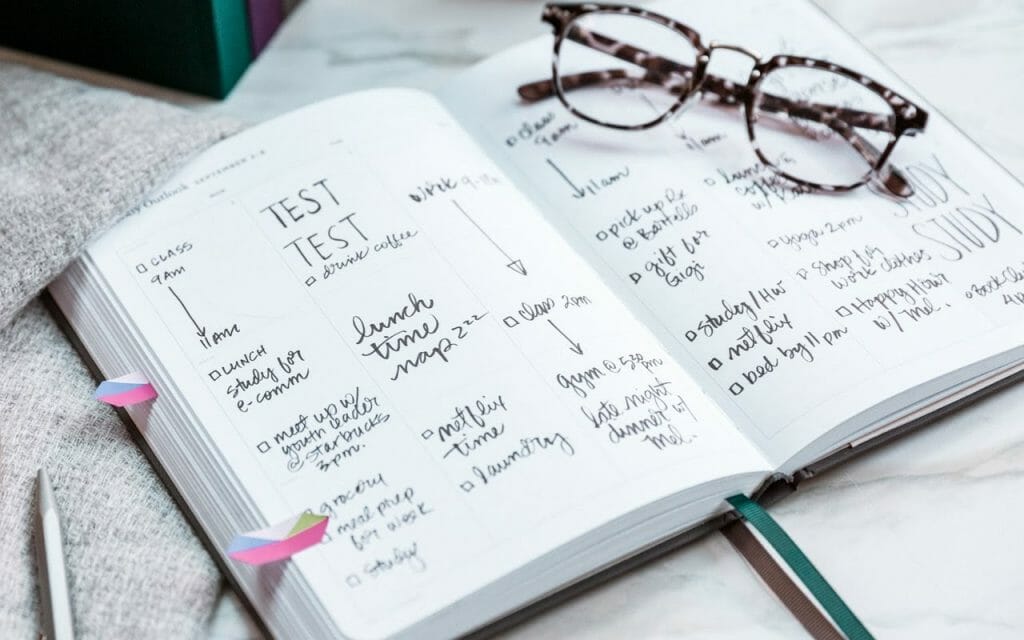 Outlook SEPTEMBER
CLASS
9AM
11AM
LUNCH
study for
e-comm
meet up w/
youth leader
@ starbucks
3pm.
grocery
meal prep
for week
study
TEST
TEST
drink coffee
lunch
time
nap 2
netflix
time
laundry
work 9-
class 2pm
gym @ 5:30
pm
late night
dinner w/
Mel.
class
9am
11am
pick up Rx
@ Bartells
gift for
Gigi
study/HW
netflix
bed by 11 pm
11am
coffee
w/
yoga 2pm
shop for
work clothes
Happy Hour
w/ Mel.
STUDY
STUDY
book